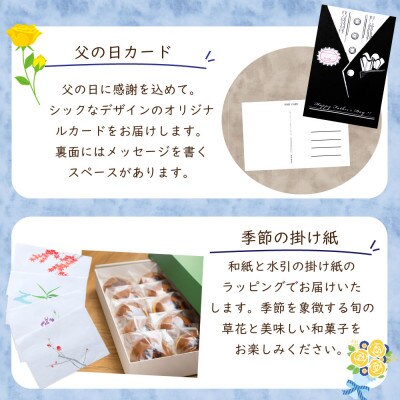 父の日カード
父の日に感謝を込めて。
シックなデザインのオリジナ
ルカードをお届けします。
裏面にはメッセージを書く
スペースがあります。
Happy Father's Day
季節の掛け紙
和紙と水引の掛け紙の
ラッピングでお届けいた
します。季節を象徴する旬の
草花と美味しい和菓子を
お楽しみください。